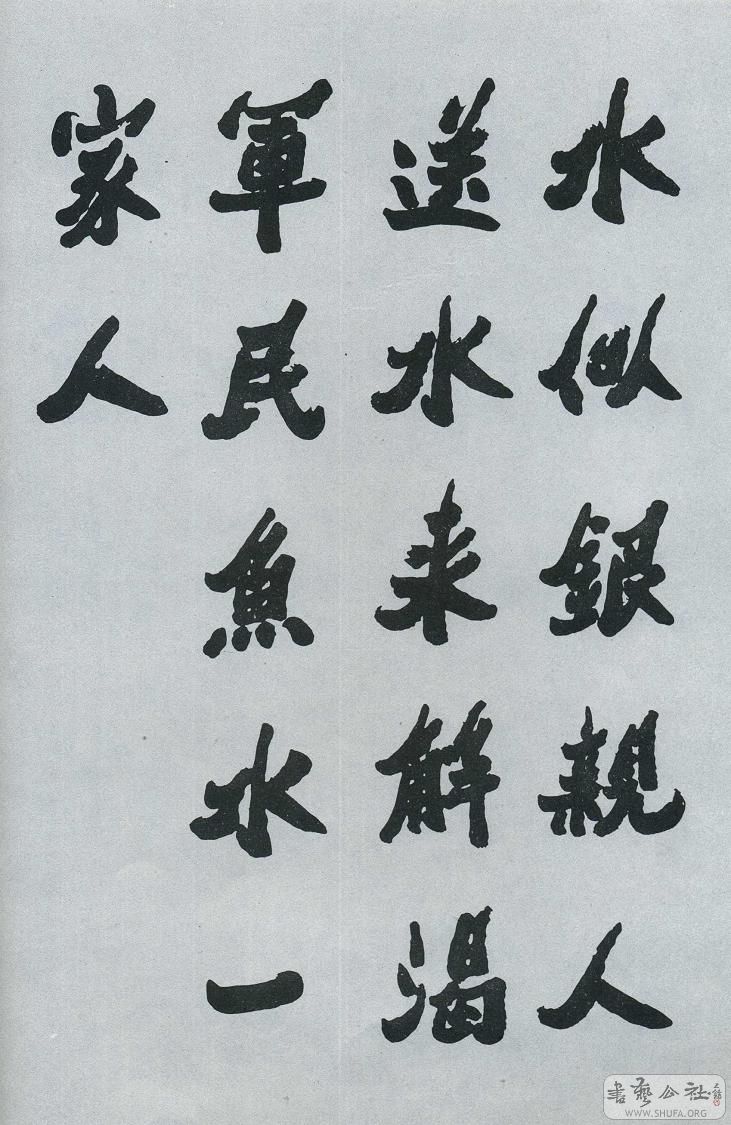 水似銀親人
送水來解渴
軍民魚水一
家人
書藝公社
WWW.SHUFA.ORG